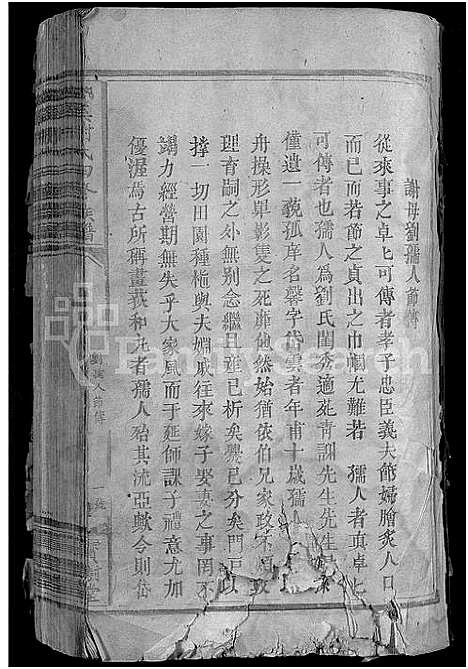 謝母劉孺人節傳
從來事之卓卓可傳者孝子忠臣義夫節婦膾炙人口
而已而若節之貞出之巾幗尤難若 孺人者真卓卓
可傳者也孺人為劉氏閨秀適苑青謝先生先生
僅遺一藐孤岸名馨字岱雲者年甫十歲孺人
舟操形單影隻之死靡他然始猶依伯兄家政不
理育嗣之外無別念繼且雖已析矣爨已分矣門戶以
撐一切田園種植與夫姻戚往來嫁子娶妻之事罔不
竭力經營期無失乎大家風而于延師課子禮意尤加
優渥為古所稱畫荻和丸者孺人殆其流亞歟令則岱
謝氏四修族譜
劉孺人節傳
FamilySearch